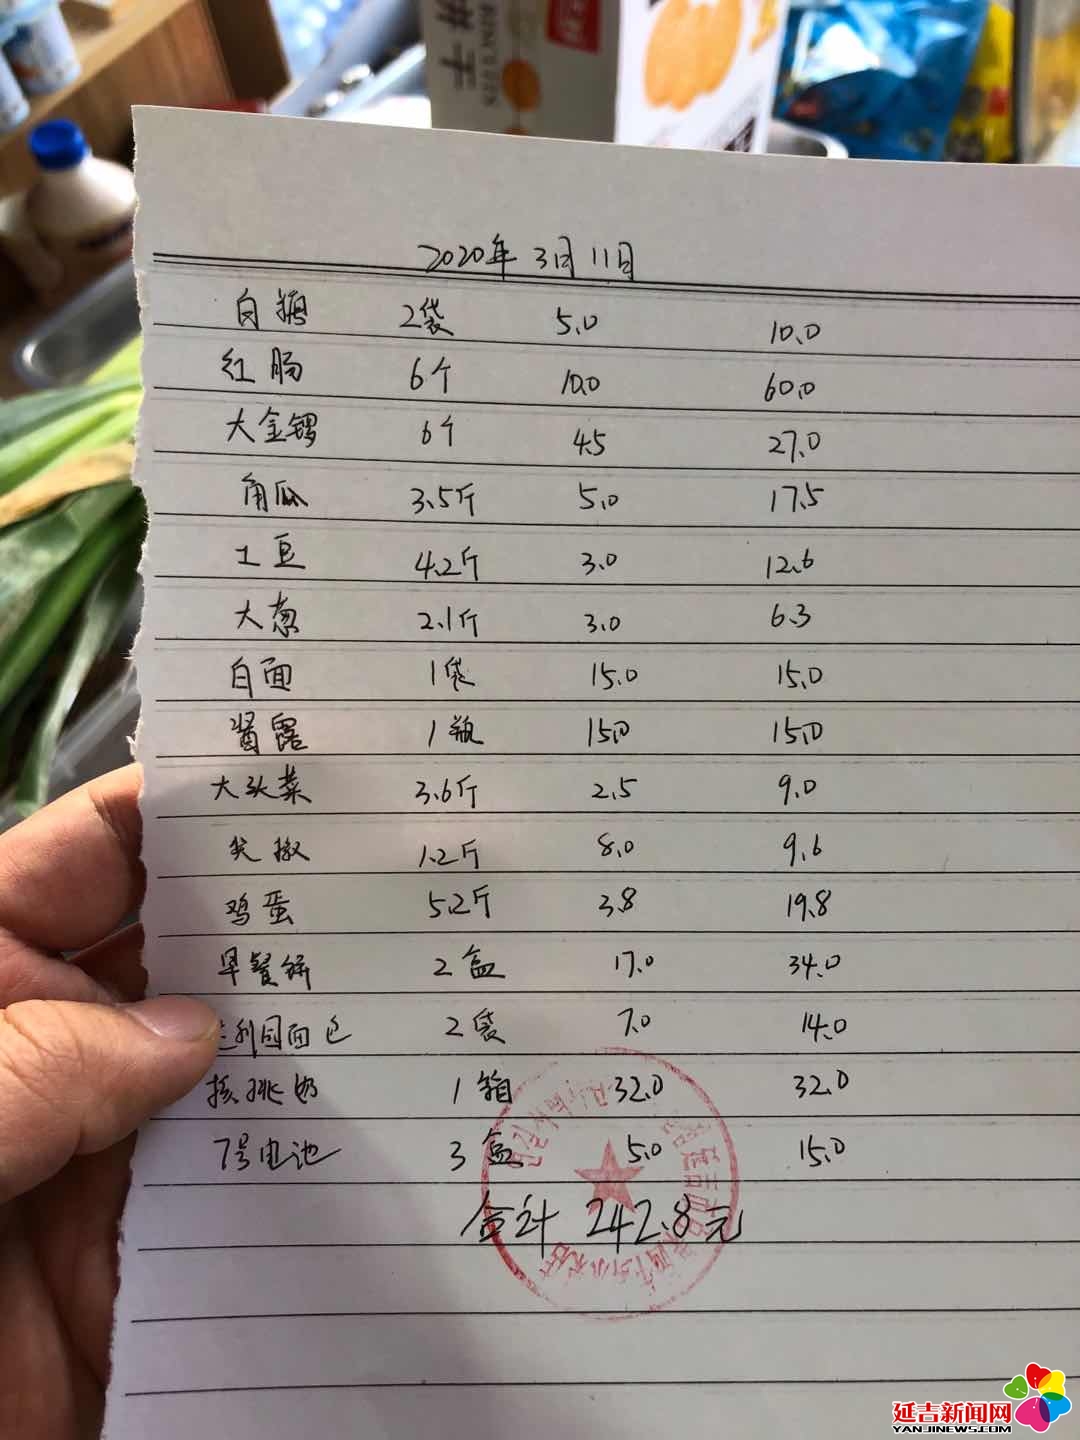 饼干
2020年3月11日
白糖 2袋 5.0 10.0
红肠 6个 10.0 60.0
大金锣 6个 4.5 27.0
角瓜 3.5斤 5.0 17.5
土豆 4.2斤 3.0 12.6
大葱 2.1斤 3.0 6.3
白面 1袋 15.0 15.0
酱露 1瓶 15.0 15.0
大头菜 3.6斤 2.5 9.0
尖椒 1.2斤 8.0 9.6
鸡蛋 5.2斤 3.8 19.8
早餐饼 2盒 17.0 34.0
利园面包 2袋 7.0 14.0
核桃奶 1箱 32.0 32.0
7号电池 3盒 5.0 15.0
合计 242.8元
延吉市
延吉新闻网
YANJINEWS.COM